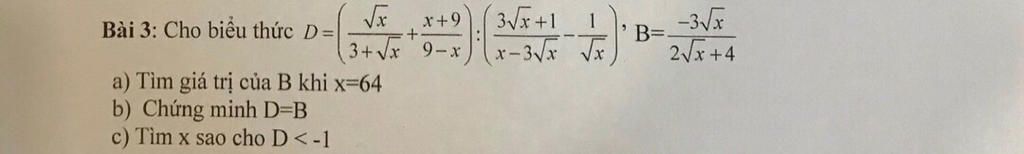 Bài 3: Cho biểu thức D=(√x/(3+√x) + (x+9)/(9−x)) : ((3√x+1)/(x−3√x) − 1/√x), B=−3√x/(2√x+4)
a) Tìm giá trị của B khi x=64
b) Chứng minh D=B
c) Tìm x sao cho D < -1